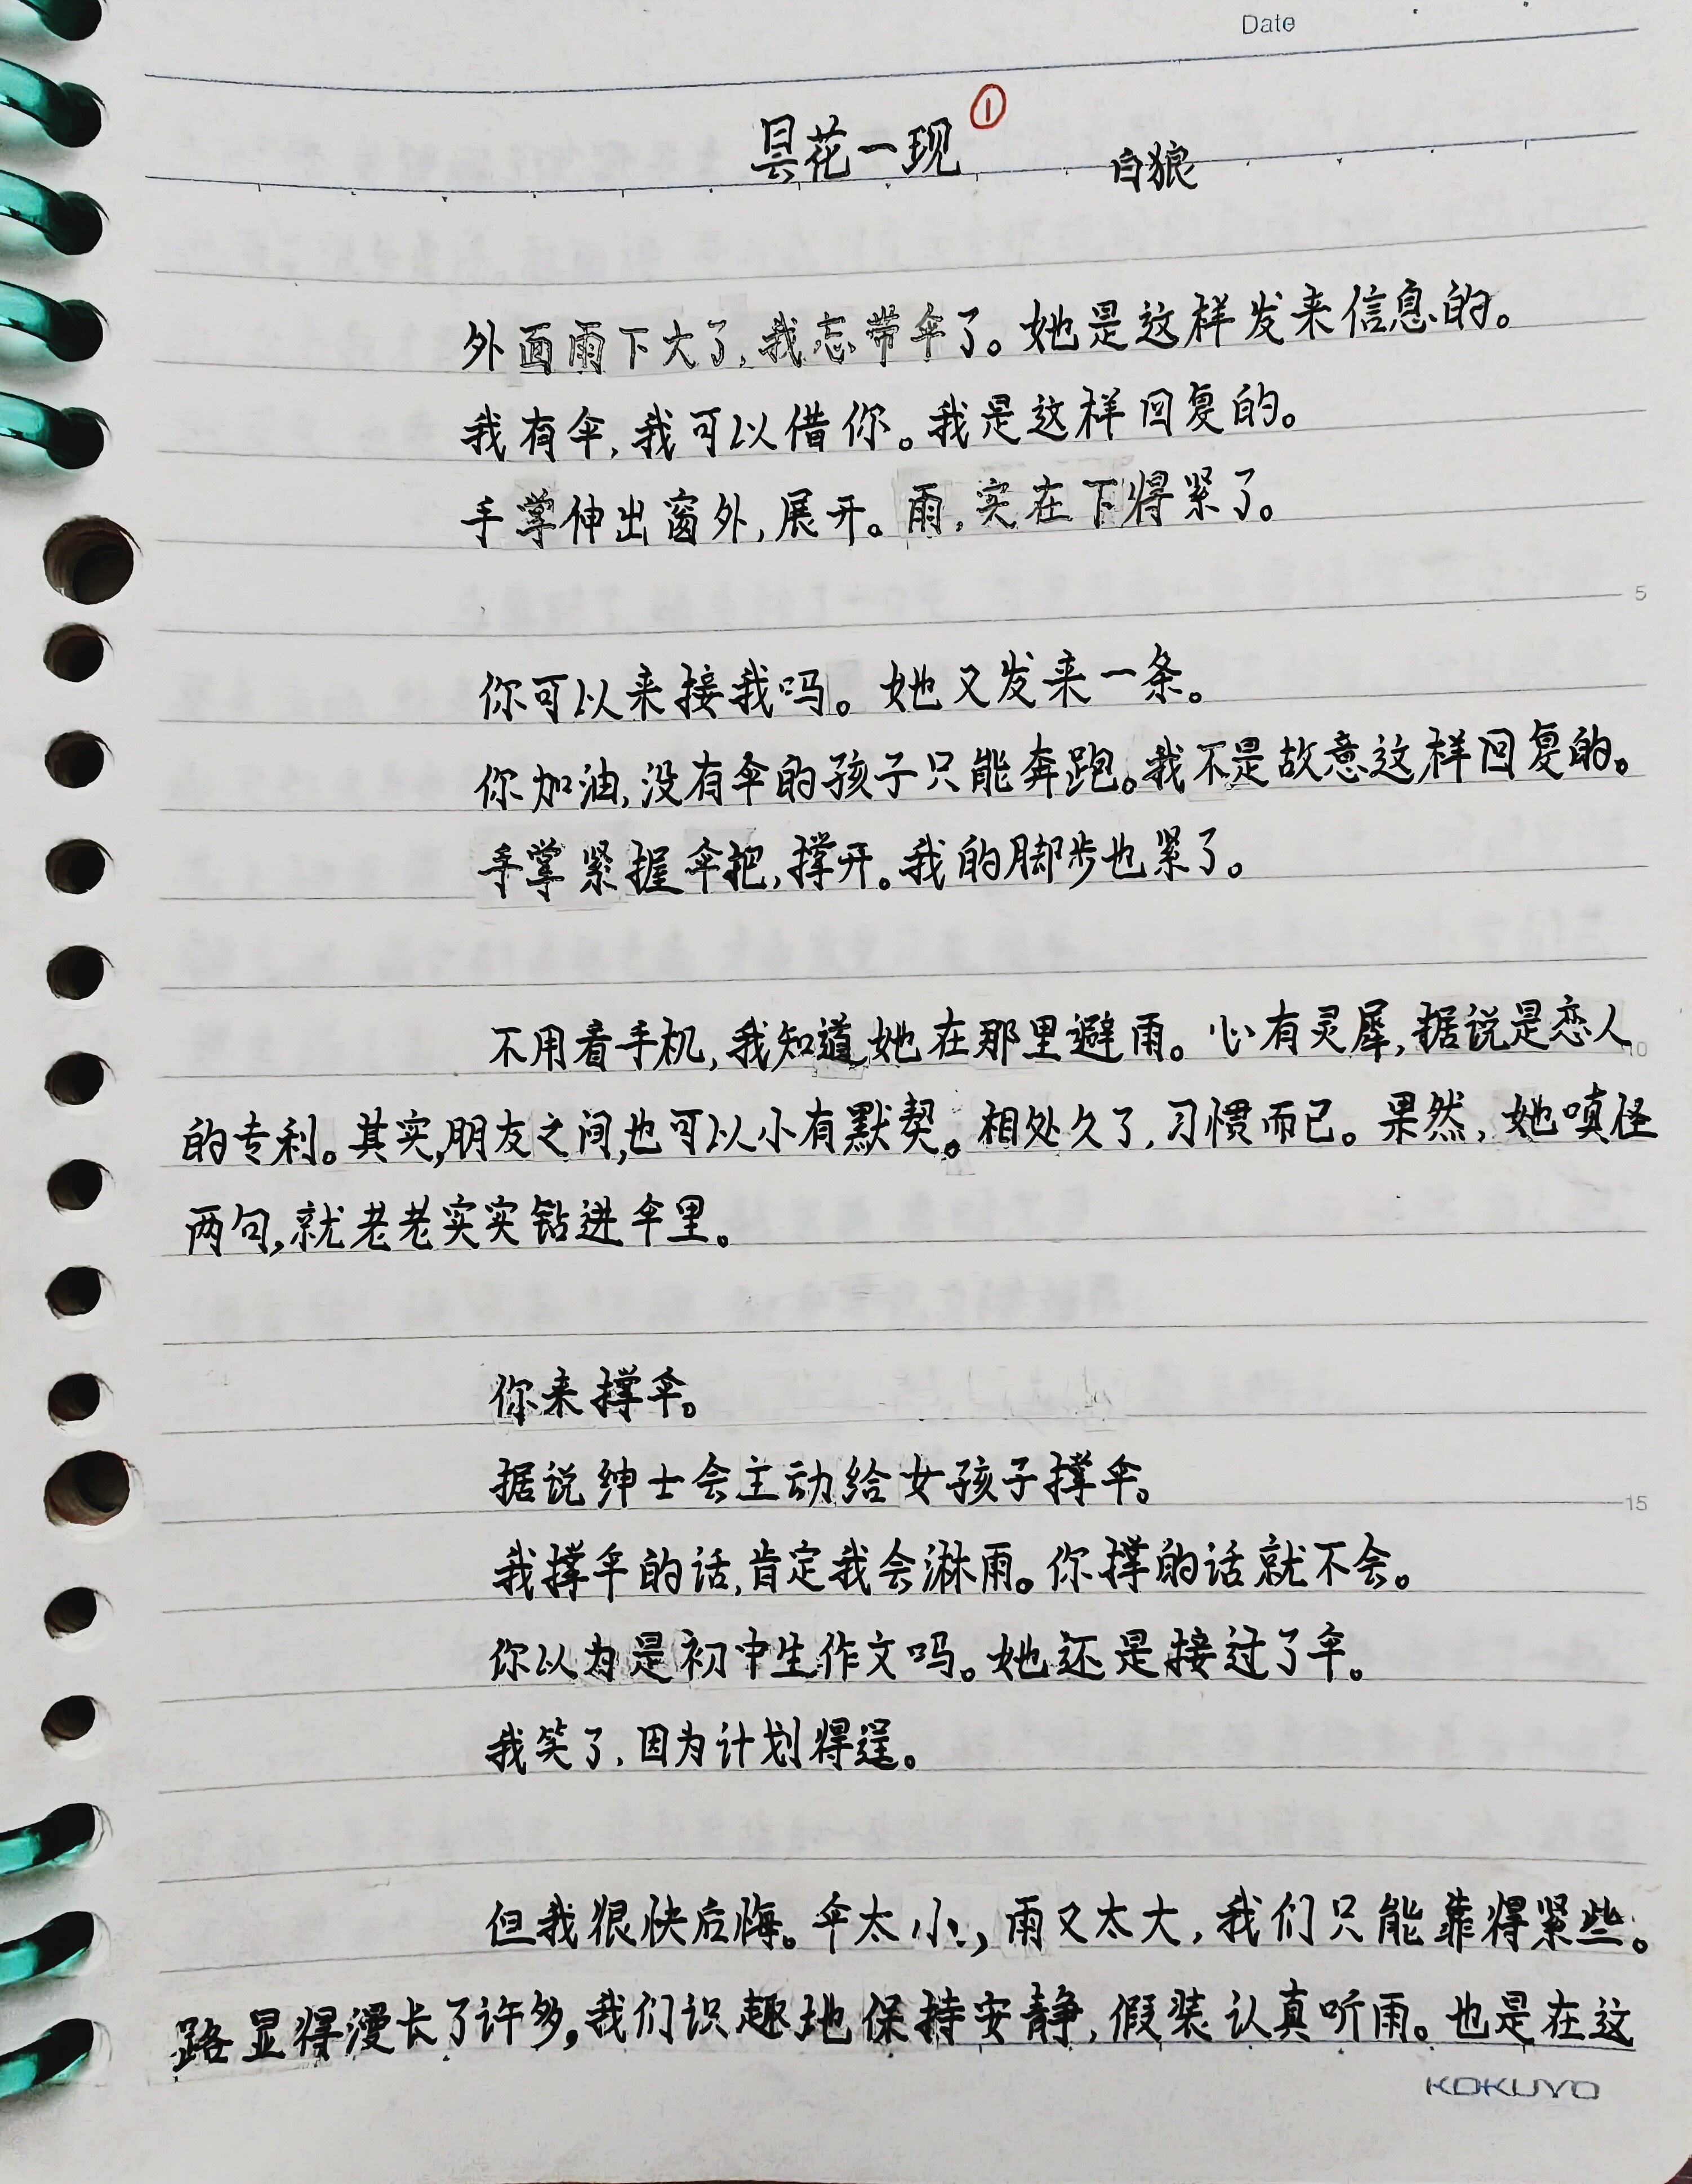 Date
昙花一现 ① 白狼
外面雨下大了,我忘带伞了。她是这样发来信息的。
我有伞,我可以借你。我是这样回复的。
手掌伸出窗外,展开。雨,实在下得紧了。
5
你可以来接我吗。她又发来一条。
你加油,没有伞的孩子只能奔跑。我不是故意这样回复的。
手掌紧握伞把,撑开。我的脚步也紧了。
不用看手机,我知道她在那里避雨。心有灵犀,据说是恋人
10
的专利。其实,朋友之间,也可以小有默契。相处久了,习惯而已。果然,她嗔怪
两句,就老老实实钻进伞里。
你来撑伞。
据说绅士会主动给女孩子撑伞。
15
我撑伞的话,肯定我会淋雨。你撑的话就不会。
你以为是初中生作文吗。她还是接过了伞。
我笑了,因为计划得逞。
但我很快后悔。伞太小,雨又太大,我们只能靠得紧些。
路显得漫长了许多,我们识趣地保持安静,假装认真听雨。也是在这
KOKUYO